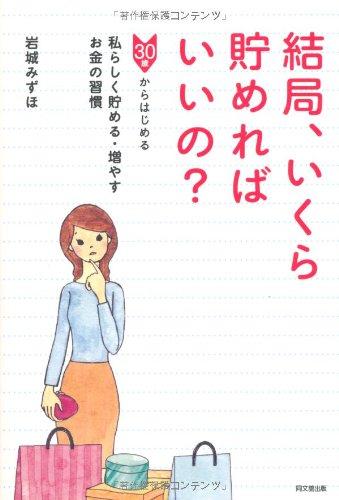 「著作権保護コンテンツ」
結局、いくら
貯めれば
いいの？
30歳からはじめる
私らしく貯める・増やす
お金の習慣
岩城みずほ
同文舘出版
「著作権保護コンテンツ」